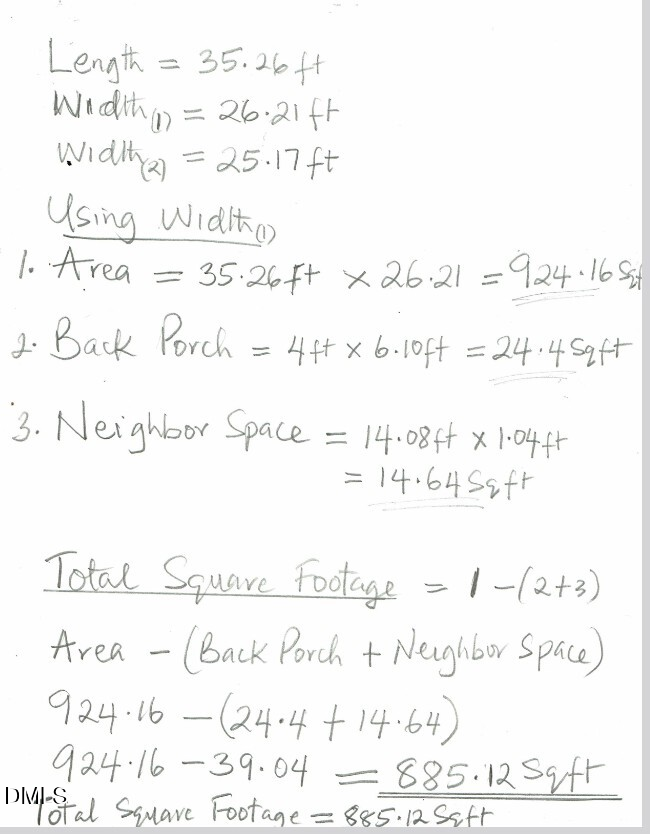 Length = 35.26 ft
Width(1) = 26.21 ft
Width(2) = 25.17 ft
Using Width(1)
1. Area = 35.26 ft × 26.21 = 924.16 Sqft
2. Back Porch = 4 ft × 6.10 ft = 24.4 Sqft
3. Neighbor Space = 14.08 ft × 1.04 ft
= 14.64 Sqft
Total Square Footage = 1 – (2+3)
Area – (Back Porch + Neighbor Space)
924.16 – (24.4 + 14.64)
924.16 – 39.04 = 885.12 Sqft
DMLS
Total Square Footage = 885.12 Sqft